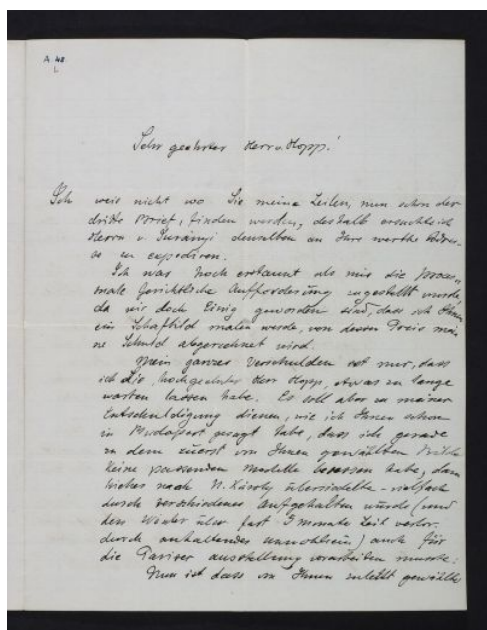 A. 48.
Sehr geehrter Herr v. Hopp!
Ich weis nicht wo Sie meine Zeilen, nun schon der
dritte Brief, finden werden, deshalb ersuchte ich
Herrn v. Surányi denselben an Ihre werthe Adres-
se zu expediren.
Ich war hoch erstaunt als mir die
male Gerichtliche Aufforderung zugestellt wurde,
da wir doch Einig geworden sind, dass ich Ihnen
ein Schafbild malen werde, von dessen Preis mei-
ne Schuld abgerechnet wird.
Mein ganzes Verschulden ist nur, dass
ich Sie, hochgeehrter Herr Hopp, etwas zu lange
warten lassen habe. Es soll aber zu meiner
Entschuldigung dienen, wie ich Ihnen schon
in Budapest gesagt habe, dass ich gerade
zu dem zuerst von Ihnen gewählten Bilde
keine passenden Modelle besessen habe, dann
bisher nach N. Károly übersiedelte - vielfach
durch verschiedenes aufgehalten wurde (und
den Winter über fast 3 Monate Zeit verlor.
durch anhaltendes Unwohlsein) auch für
die Pariser Ausstellung vorarbeiten musste:
Nun ist dass von Ihnen zuletzt gewählte